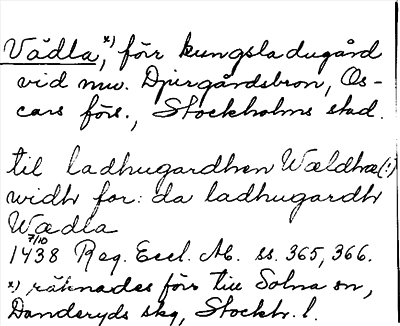 Vädla,*) förr kungsladugård
vid nuv. Djurgårdsbron, Os-
cars förs., Stockholms stad.
til ladhugardhen Wældhæ(!)
widh for: da ladhugardh
Wædla
7/10
1438 Reg. Eccl. Ab. ss. 365, 366.
*) räknades förr till Solna sn,
Danderyds skg, Stockh. l.